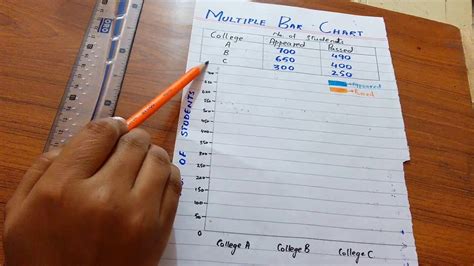 MULTIPLE BAR CHART
College No. of Students
Appeared Passed
A 700 490
B 650 400
C 300 250
Appeared
Passed
OF STUDENTS
650
600
550
500
450
400
350
300
250
200
150
100
50
0
College A College B College C